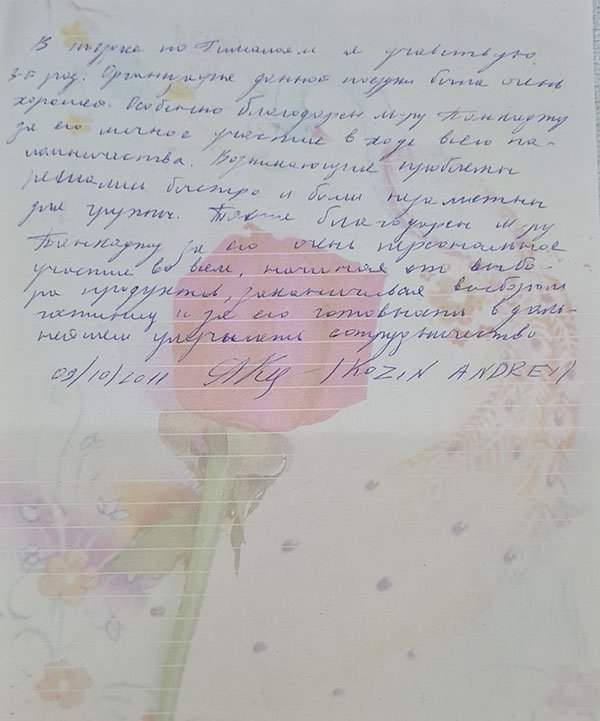 В поездке по Гималаям я участвую
3й раз. Организация данной поездки была очень
хорошая. Особенно благодарен м-ру Панкаджу
за его личное участие в ходе всего па-
ломничества. Возникающие проблемы
решались быстро и были незаметны
для группы. Также благодарен м-ру
Панкаджу за его очень персональное
участие во всём, начиная от выбо-
ра продуктов, заканчивая выбором
гостиниц и за его готовность в даль-
нейшем улучшить сотрудничество
09/10/2011 /KOZIN ANDREY/